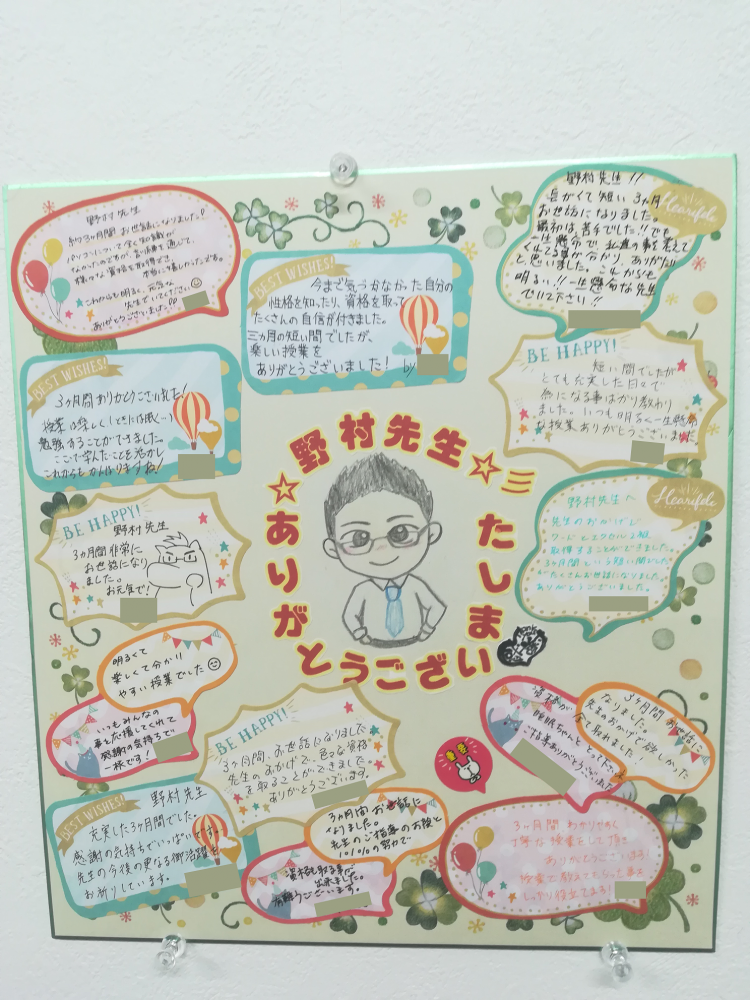 野村先生
約3ヶ月間お世話になりました!
パソコンについて全く知識が
これからも明るく、元気な
先生でいてください。
ありがとうございました。
BEST WISHES!
今まで気づかなかった自分の
性格を知ったり、資格を取って
たくさんの自信が付きました。
三ヵ月の短い間でしたが、
楽しい授業を
ありがとうございました!
by
野村先生!!
長がくて短い3ヶ月
お世話になりました。
最初は、苦手でした!!でも
一生懸命で、私達の事を考えて
くれてる事が分かり、ありがたい
と思いました。これからも
明るい!!一生懸命な先生
でいて下さい!!
Heartfelt
BEST WISHES!
3ヶ月間ありがとうございました!
授業は楽しく
勉強することができました。
ここで学んだことを活かし
これからもがんばりますね!
BE HAPPY!
短い間でしたが
とても充実した日々で
為になる事ばかり教わり
ました。いつも明るく一生懸命
な授業ありがとうございました
☆野村先生☆三
ありがとうございいたしま
BE HAPPY!
野村先生
3ヵ月間非常に
お世話になり
ました。
お元気で!
Heartfelt
野村先生へ
先生のおかげで
ワードとエクセル2級
取得することができました。
3ヶ月間という短い間でした
がたくさんお世話になりました。
ありがとうございました。
明るくて
楽しくて分かり
やすい授業でした
いつもみんなの
事を応援してくれて
感謝の気持ちで
一杯です!
BE HAPPY!
3ヶ月間、お世話になりました
先生のおかげで、色々な資格
を取ることができました
ありがとうございます。
資格が
睡眠ちゃんととって下さい
ご指導ありがとうございました
3ヶ月間お世話に
なりました。
先生のおかげで欲しかった
全て取れました!
Thank you
BEST WISHES!
野村先生
充実した3ヶ月間でした。
感謝の気持ちでいっぱいです。
先生の今後の更なる御活躍を
お祈りしています。
3ヵ月間お世話に
なりました。
先生のご指導のお陰と
1010%の努力で
資格も取る事が
出来ました。
有難うございます。
3ヶ月間わかりやすく
丁寧な授業をして頂き
ありがとうございます!
授業で教えてもらった事を
しっかり役立てます!